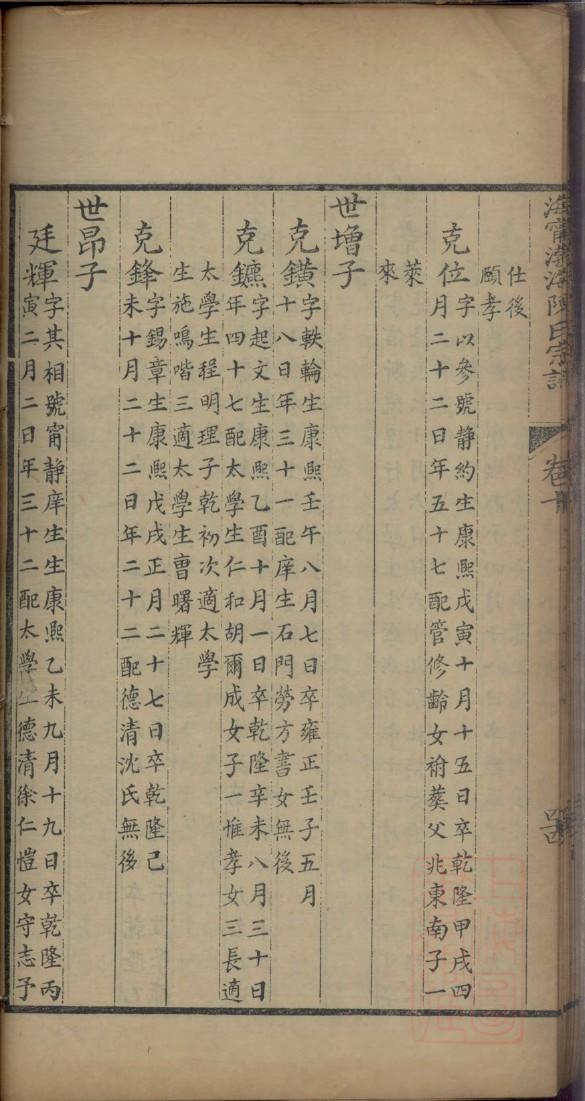 海甯渤海陳氏宗譜
卷十
仕後
願孝
克位
字以參號静約生康熙戊寅十月十五日卒乾隆甲戌四
月二十二日年五十七配管修齡女祔葬父兆東南子一
萊
來
世增子
克鐄
字軼輪生康熙壬午八月七日卒雍正壬子五月
十八日年三十一配庠生石門勞方書女無後
克鑣
字起文生康熙乙酉十月一日卒乾隆辛未八月三十日
年四十七配太學生仁和胡爾成女子一惟孝女三長適
太學生程明理子乾初次適太學
生施鳴喈三適太學生曺曙輝
克鋒
字錫章生康熙戊戌正月二十七日卒乾隆己
未十月二十二日年二十二配德清沈氏無後
世昂子
廷輝
字其相號甯静庠生生康熙乙未九月十九日卒乾隆丙
寅二月二日年三十二配太學生德清徐仁愷女守志予